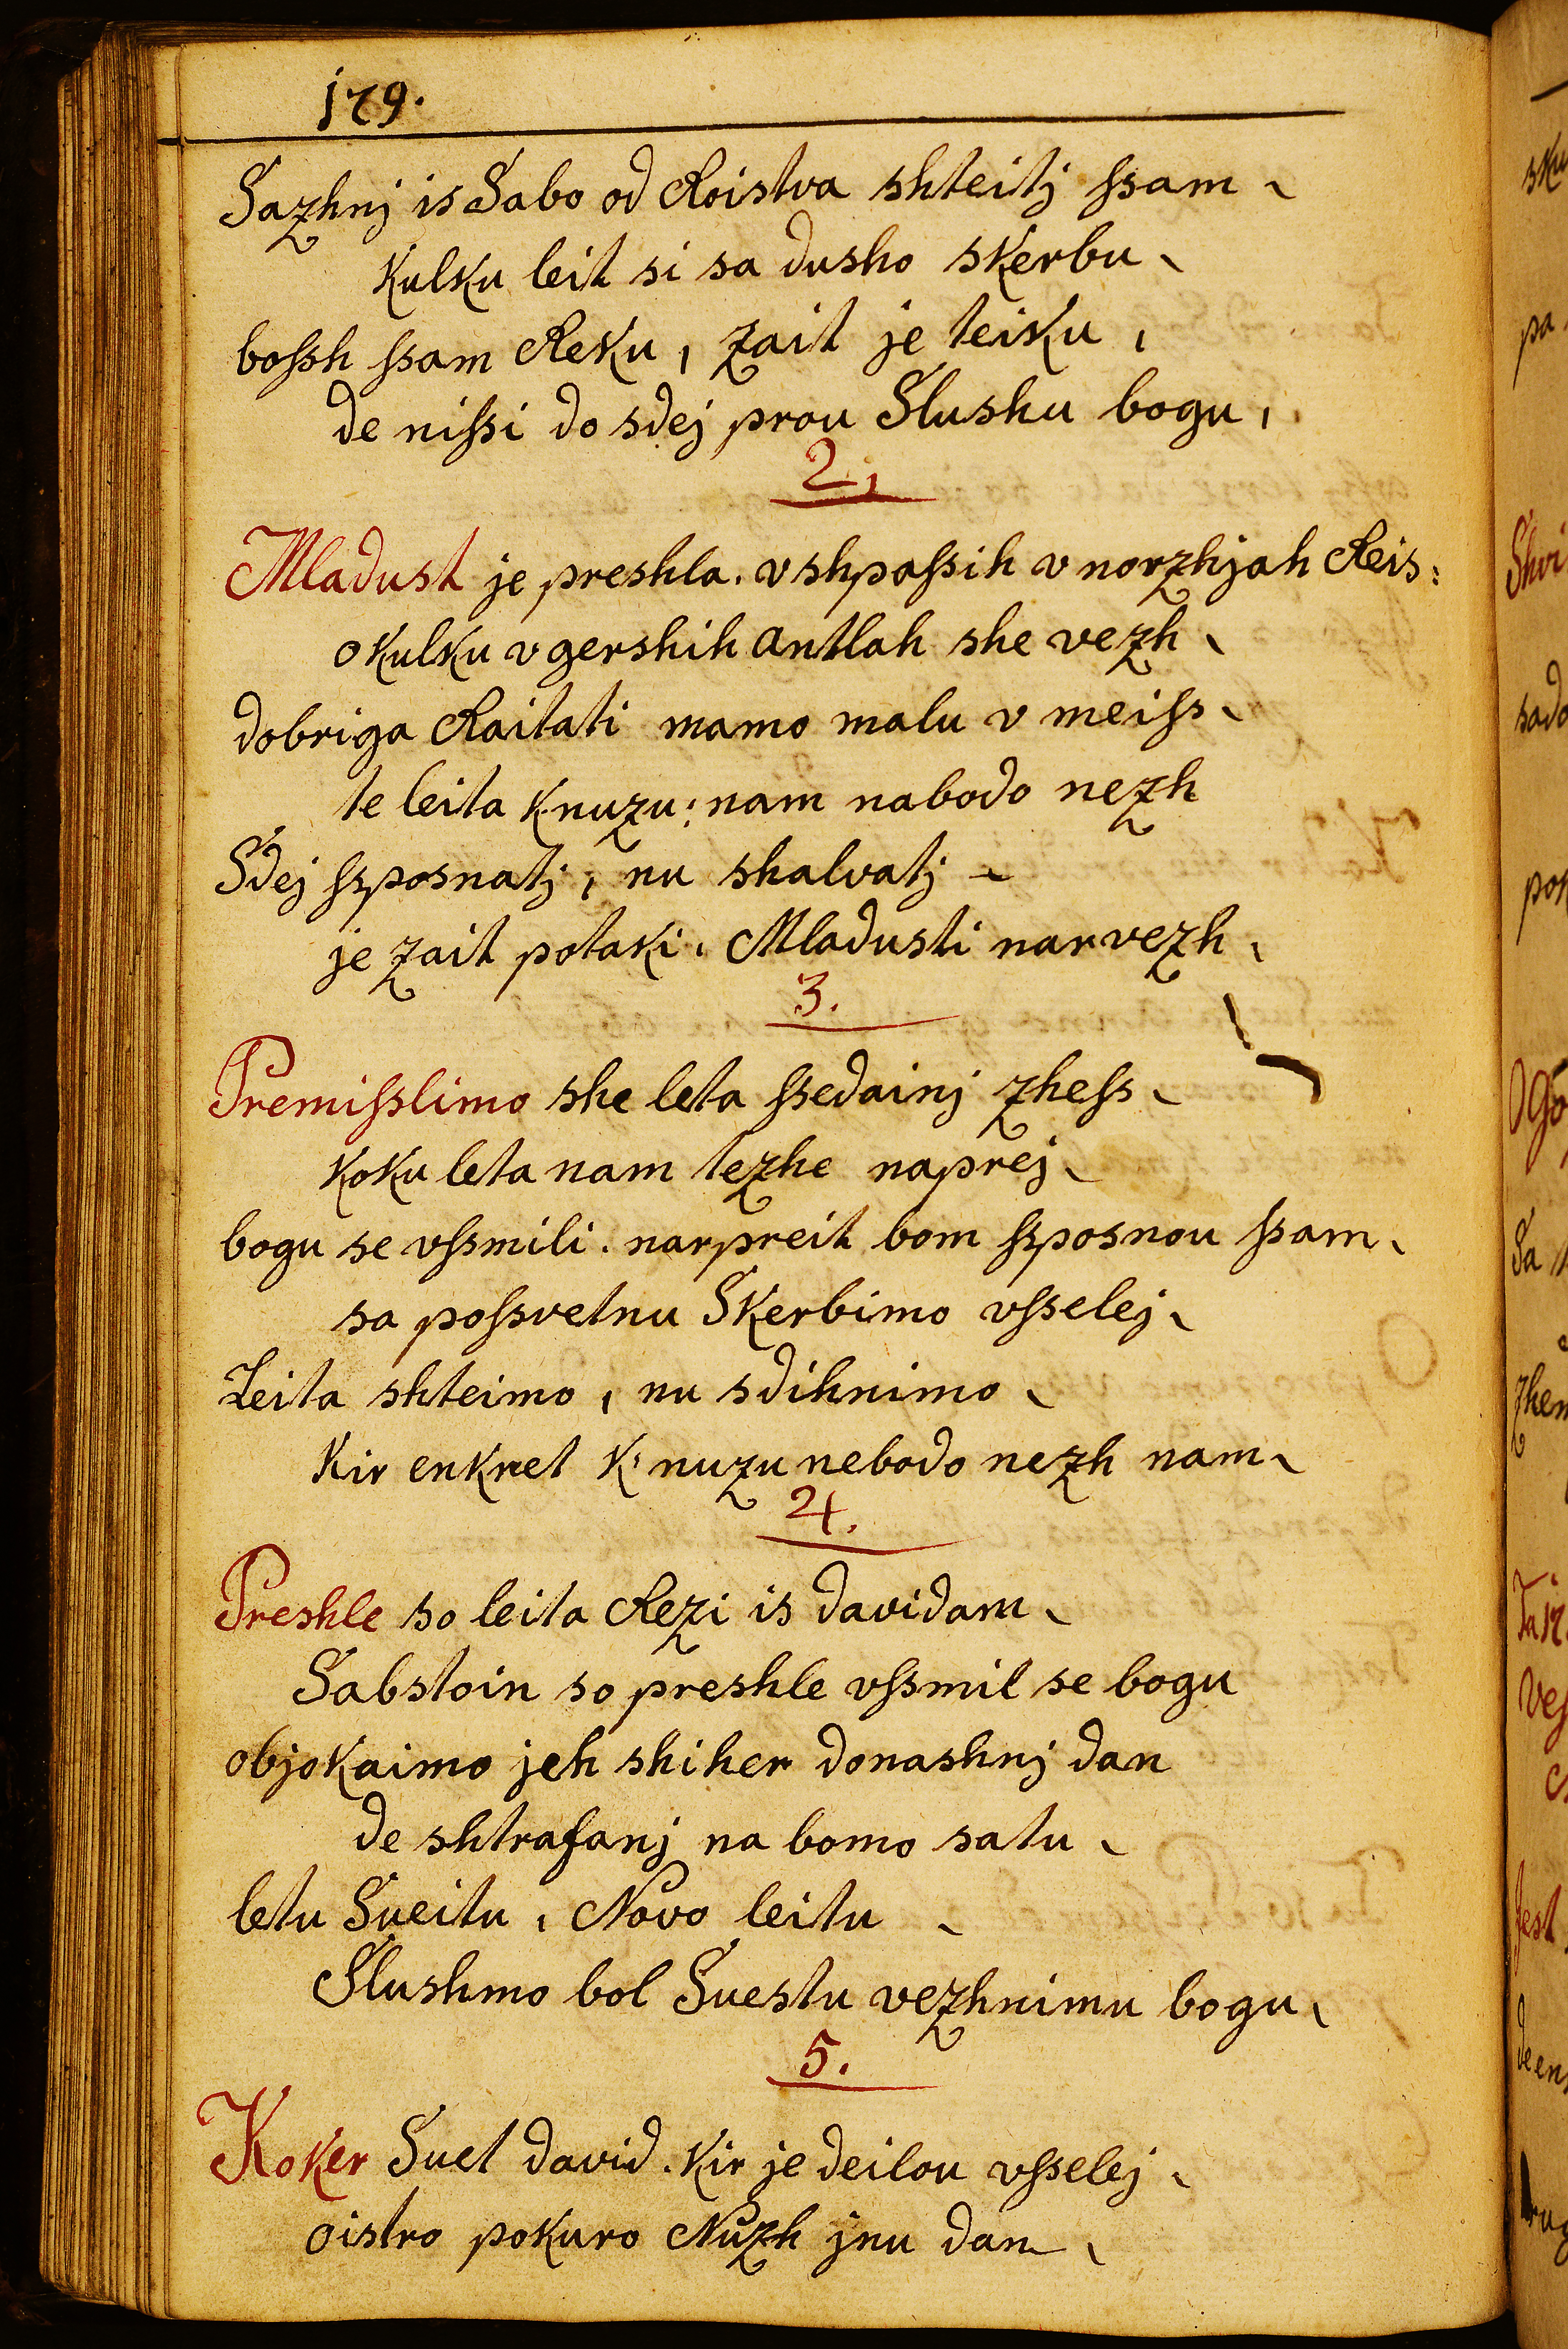 179.
Sazhnj is Sabo od Roistva shteitj ſsam
Kulku leit si sa dusho skerbu
boſsh ſsam Reku, zait je teisku,
de niſsi do sdej prou Slushu bogu,
2,
Mladust je preshla. v shpaſsih v norzhjah Reis:
o kulku v gershih antlah she vezh
dobriga Raitati mamo malu v meiſs
te leita k nuzu: nam nabodo nezh
Sdej ſsposnatj, nu shalvatj
je zait potaki. Mladusti narvezh
3.
Premiſslimo she leta ſsedainj zheſs
koku leta nam tezhe naprej
bogu se vſsmili. narpreit bom ſsposnou ſsam
sa poſsvetnu Skerbimo vſselej
Leita shteimo, nu sdihnimo
Kir enkret K' nuzu nebodo nezh nam
4.
Preshle so leita Rezi is davidam
Sabstoin so preshle vſsmil se bogu
objokaimo jeh shiher donashnj dan
de shtrafanj na bomo satu
letu Sueitu, Novo leitu
Slushmo bol Suestu vezhnimu bogu
5.
Koker Suet david. Kir je deilou vſselej
oistro pokuro Nuzh jnu dan